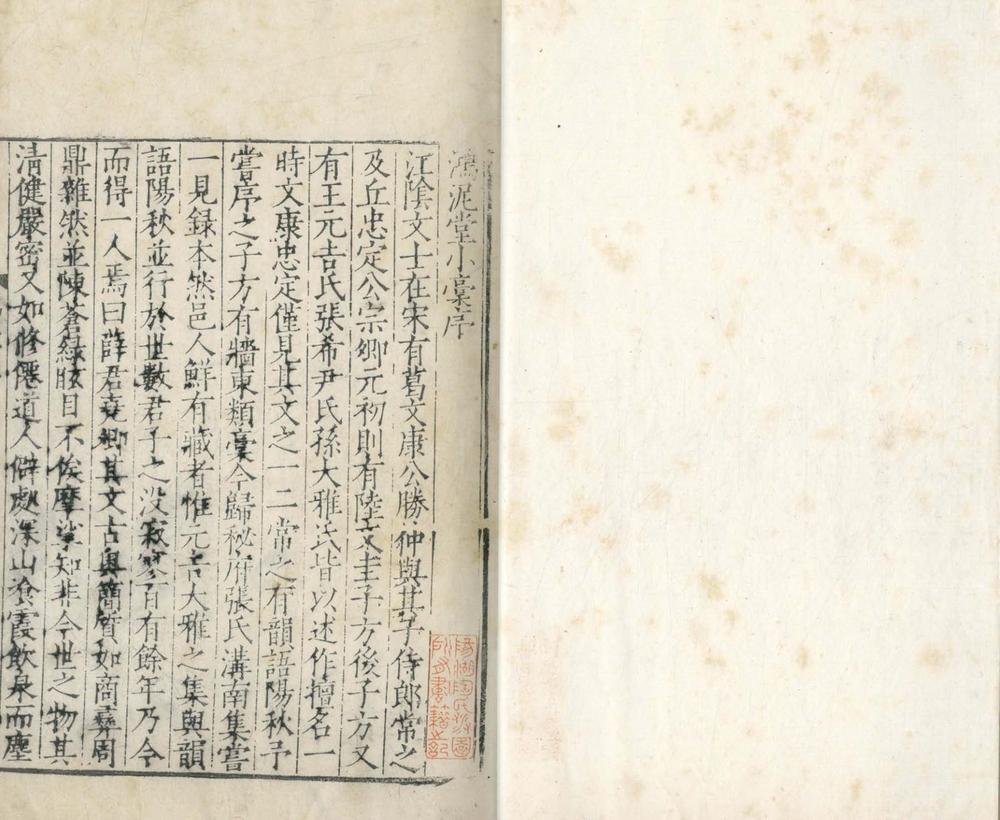 鴻泥堂小藁序
江陰文士在宋有葛文康公勝仲與其子侍郎常之
及丘忠定公宗卿元初則有陸文圭子方後子方又
有王元吉氏張希尹氏孫大雅氏皆以述作擅名一
時文康忠定僅見其文之一二常之有韻語陽秋予
嘗序之子方有牆東類藁今歸秘府張氏溝南集嘗
一見録本然邑人鮮有藏者惟元吉大雅之集與韻
語陽秋並行於世數君子之没寂寥百有餘年乃今
而得一人焉曰薛君堯卿其文古奥簡質如商彝周
鼎雜然並陳蒼緑眩目不俟摩挲知非今世之物其
清健嚴密又如修僊道人僻處深山飡霞飲泉而塵
陽湖陶氏涉園
所有書籍之記